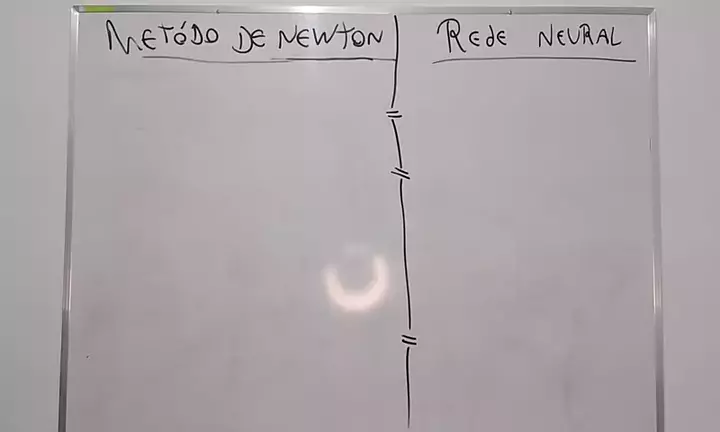 METÓDO DE NEWTON
REDE NEURAL